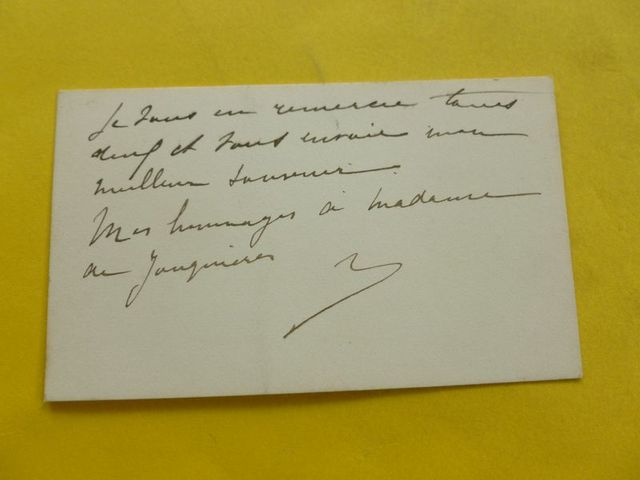 Je vous en remercie tous
deux et vous envoie mon
meilleur souvenir.
Mes hommages à Madame
de